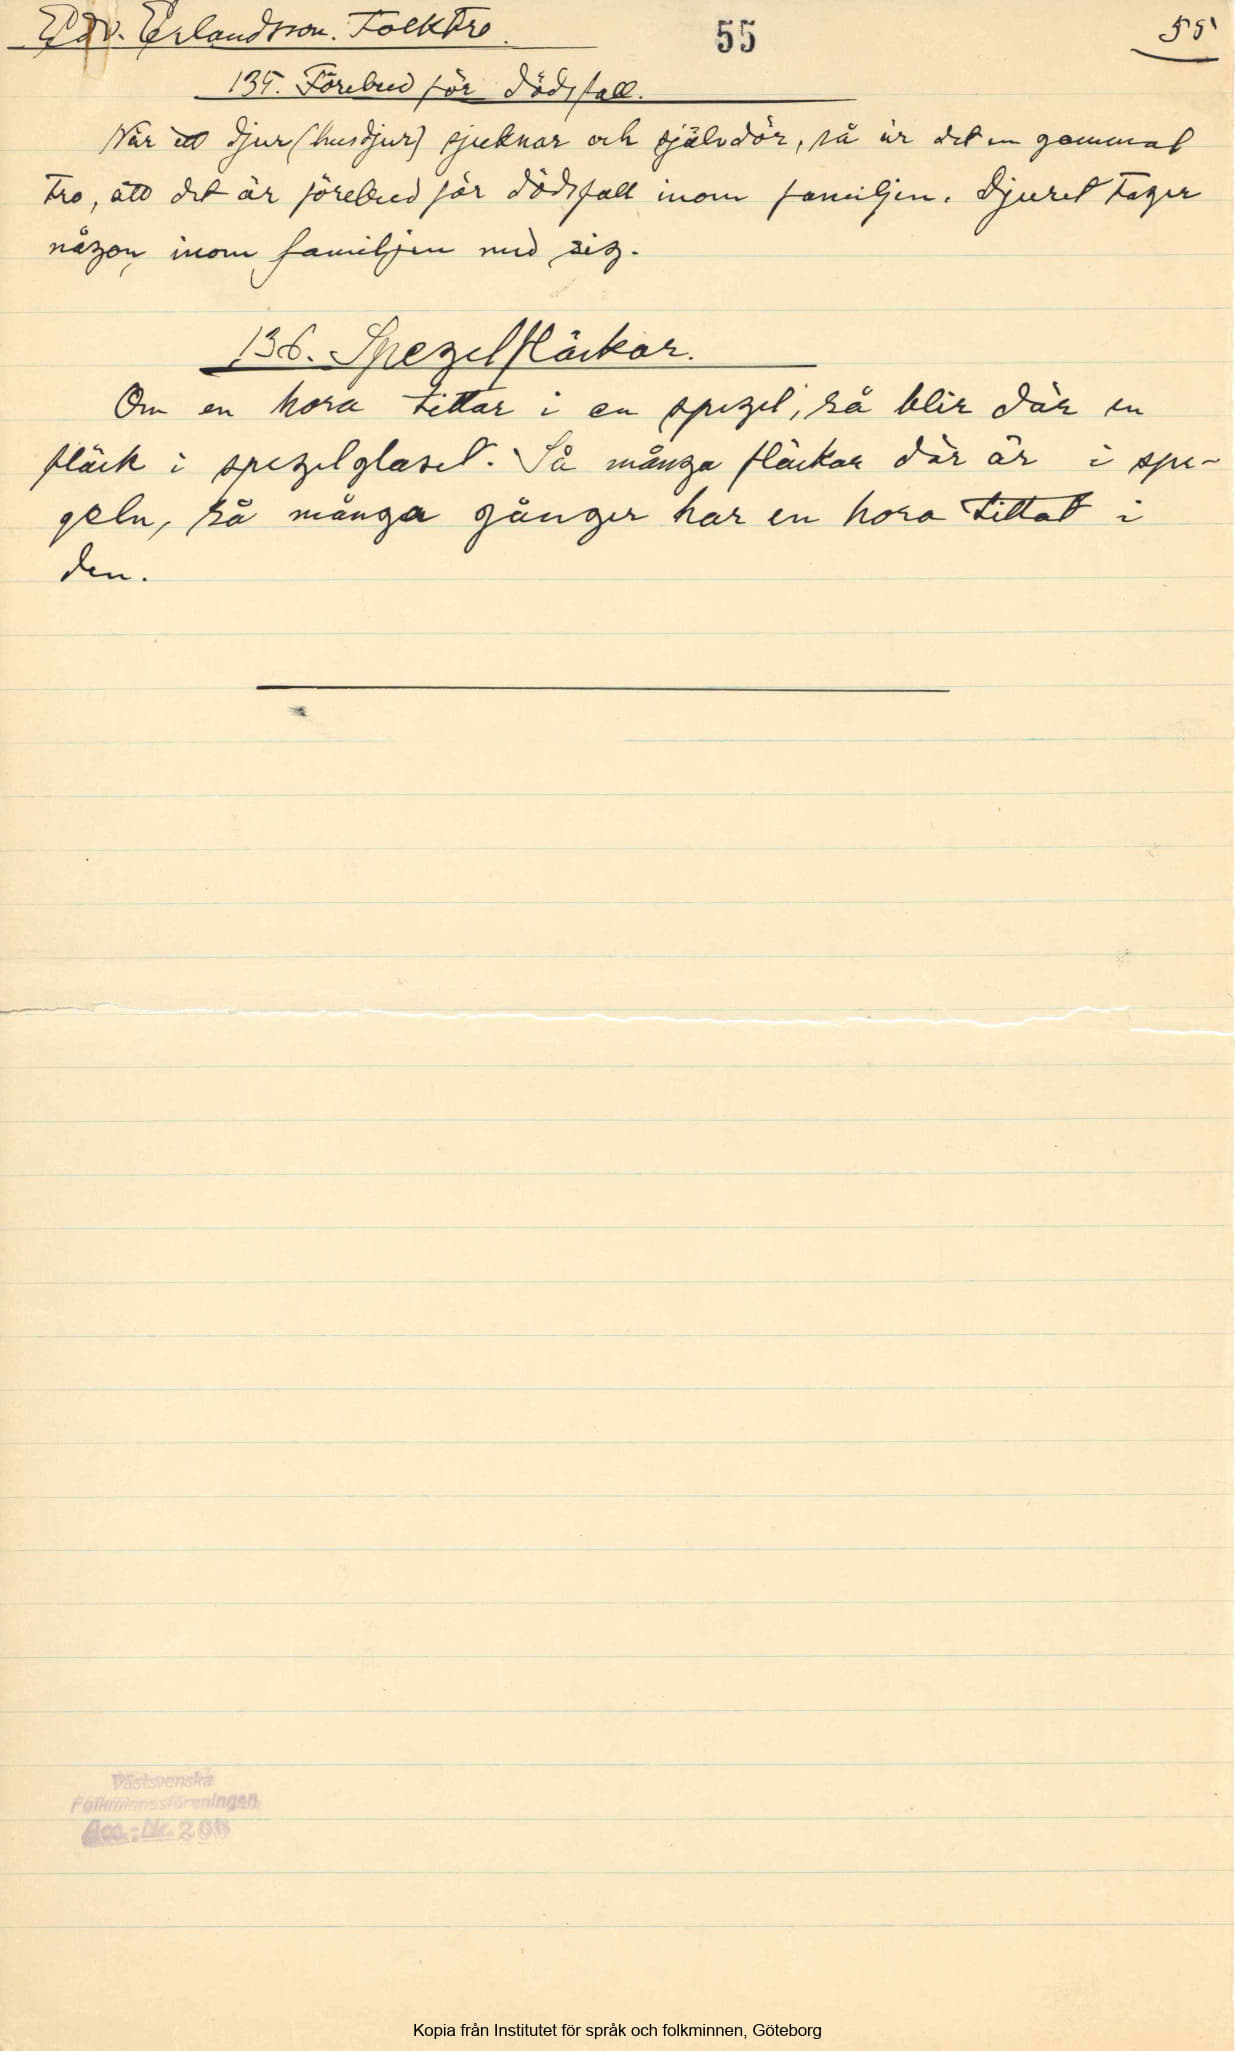 Edv. Erlandsson. Folktro.
55
55
135. Förebud för dödsfall.
När ett djur (husdjur) sjuknar och självdör, så är det en gammal
tro, att det är förebud för dödsfall inom familjen. Djuret tager
någon inom familjen med sig.
136. Spegelfläckar.
Om en hora tittar i en spegel, så blir där en
fläck i spegelglaset. Så många fläckar där är i spe-
geln, så många gånger har en hora tittat i
den.
Västsvenska
Folkminnesföreningen
Acc.-Nr.
Kopia från Institutet för språk och folkminnen, Göteborg